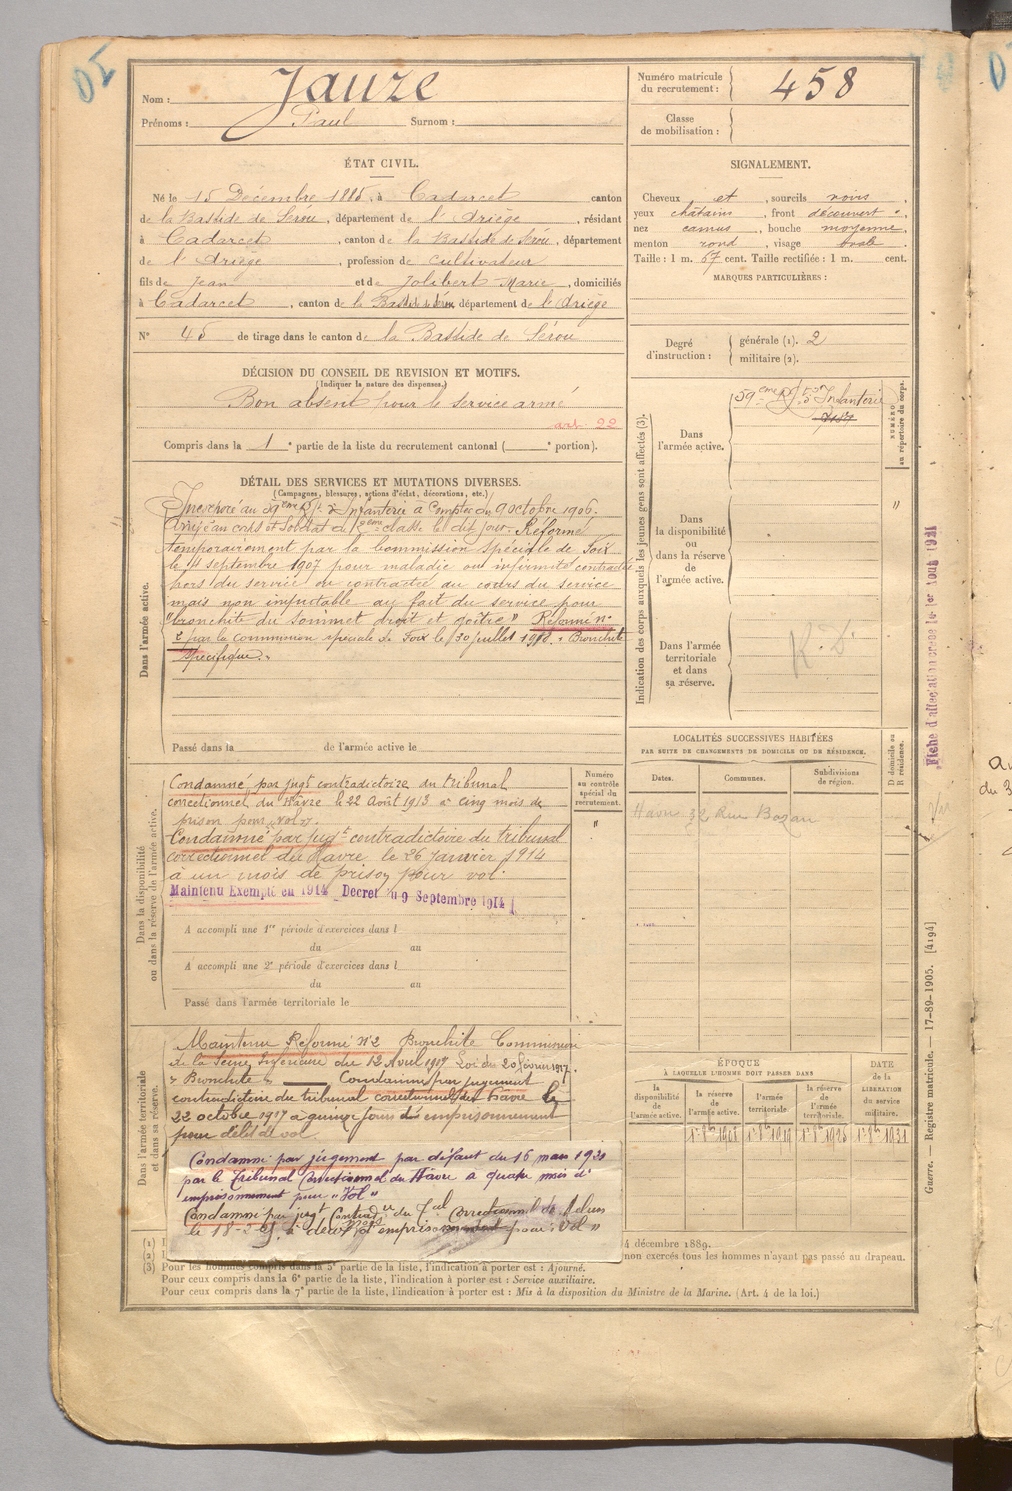 Nom : Jauze
Prénoms : Paul Surnom :
Numéro matricule du recrutement : 458
Classe de mobilisation :
ÉTAT CIVIL.
Né le 15 Décembre 1885, à Cadarcet canton
de la Bastide de Sérou, département de l'Ariège, résidant
à Cadarcet, canton de la Bastide de Sérou, département
de l'Ariège, profession de cultivateur
fils de Jean et de Jolibert Marie, domiciliés
à Cadarcet, canton de la Bastide de Sérou, département de l'Ariège
N° 45 de tirage dans le canton de la Bastide de Sérou
SIGNALEMENT.
Cheveux et, sourcils noirs,
yeux châtains, front découvert,
nez camus, bouche moyenne,
menton rond, visage ovale.
Taille : 1 m. 67 cent. Taille rectifiée : 1 m. cent.
MARQUES PARTICULIÈRES :
Degré d'instruction : générale (1). 2
militaire (2).
DÉCISION DU CONSEIL DE REVISION ET MOTIFS.
(Indiquer la nature des dispenses.)
Bon absent pour le service armé
art. 22
Compris dans la 1e partie de la liste du recrutement cantonal ( e portion).
DÉTAIL DES SERVICES ET MUTATIONS DIVERSES.
(Campagnes, blessures, actions d'éclat, décorations, etc.)
Dans l'armée active.
Incorporé au 59eme Rgt d'Infanterie à compter du 9 octobre 1906.
Arrivé au corps et soldat de 2eme classe le dit jour. Réformé
temporairement par la Commission spéciale de Foix
le 14 septembre 1907 pour maladie ou infirmité contractée
hors du service ou contractée au cours du service
mais non imputable au fait du service pour
"bronchite du sommet droit et goître" Réformé n°
2 par la Commission spéciale de Foix le 30 juillet 1908. "Bronchite
spécifique."
Passé dans la de l'armée active le
Indication des corps auxquels les jeunes gens sont affectés (3).
NUMÉRO au répertoire du corps.
Dans l'armée active.
59eme Rgt d'Infanterie
Dans la disponibilité ou dans la réserve de l'armée active.
"
Dans l'armée territoriale et dans sa réserve.
Dans la disponibilité ou dans la réserve de l'armée active.
Numéro au contrôle spécial du recrutement.
"
Condamné par jugt contradictoire du tribunal
correctionnel du Havre le 22 Août 1913 à cinq mois de
prison pour vol.
Condamné par jugt contradictoire du tribunal
correctionnel du Havre, le 26 Janvier 1914
à un mois de prison pour vol.
Maintenu Exempté en 1914 Decret du 9 Septembre 1914
A accompli une 1re période d'exercices dans l
du au
A accompli une 2e période d'exercices dans l
du au
Passé dans l'armée territoriale le
LOCALITÉS SUCCESSIVES HABITÉES
PAR SUITE DE CHANGEMENTS DE DOMICILE OU DE RÉSIDENCE.
Dates. Communes. Subdivisions de région. D domicile ou R résidence.
Havre 32 Rue Bazan
Dans l'armée territoriale et dans sa réserve.
Maintenu Réformé n°2 Bronchite Commission
de la Seine Inférieure du 12 Avril 1917 Loi du 20 février 1917.
"Bronchite" Condamné par jugement
contradictoire du tribunal correctionnel du Havre le
22 octobre 1917 à quinze jours d'emprisonnement
pour délit de vol
Condamné par jugement par défaut du 16 mars 1920
par le Tribunal Correctionnel du Havre à quatre mois d'
emprisonnement pour "Vol"
Condamné par jugt Contradre du Tal Correctionnel de
le 18-2 à deux mois d'emprisonnement pour "Vol"
ÉPOQUE
À LAQUELLE L'HOMME DOIT PASSER DANS
la disponibilité de l'armée active.
la réserve de l'armée active.
l'armée territoriale.
la réserve de l'armée territoriale.
DATE de la LIBÉRATION du service militaire.
4 décembre 1889.
non exercés tous les hommes n'ayant pas passé au drapeau.
(1)
(2)
(3) Pour les hommes compris dans la 5e partie de la liste, l'indication à porter est : Ajourné.
Pour ceux compris dans la 6e partie de la liste, l'indication à porter est : Service auxiliaire.
Pour ceux compris dans la 7e partie de la liste, l'indication à porter est : Mis à la disposition du Ministre de la Marine. (Art. 4 de la loi.)
Guerre. — Registre matricule. — 17-89-1905. [4194]